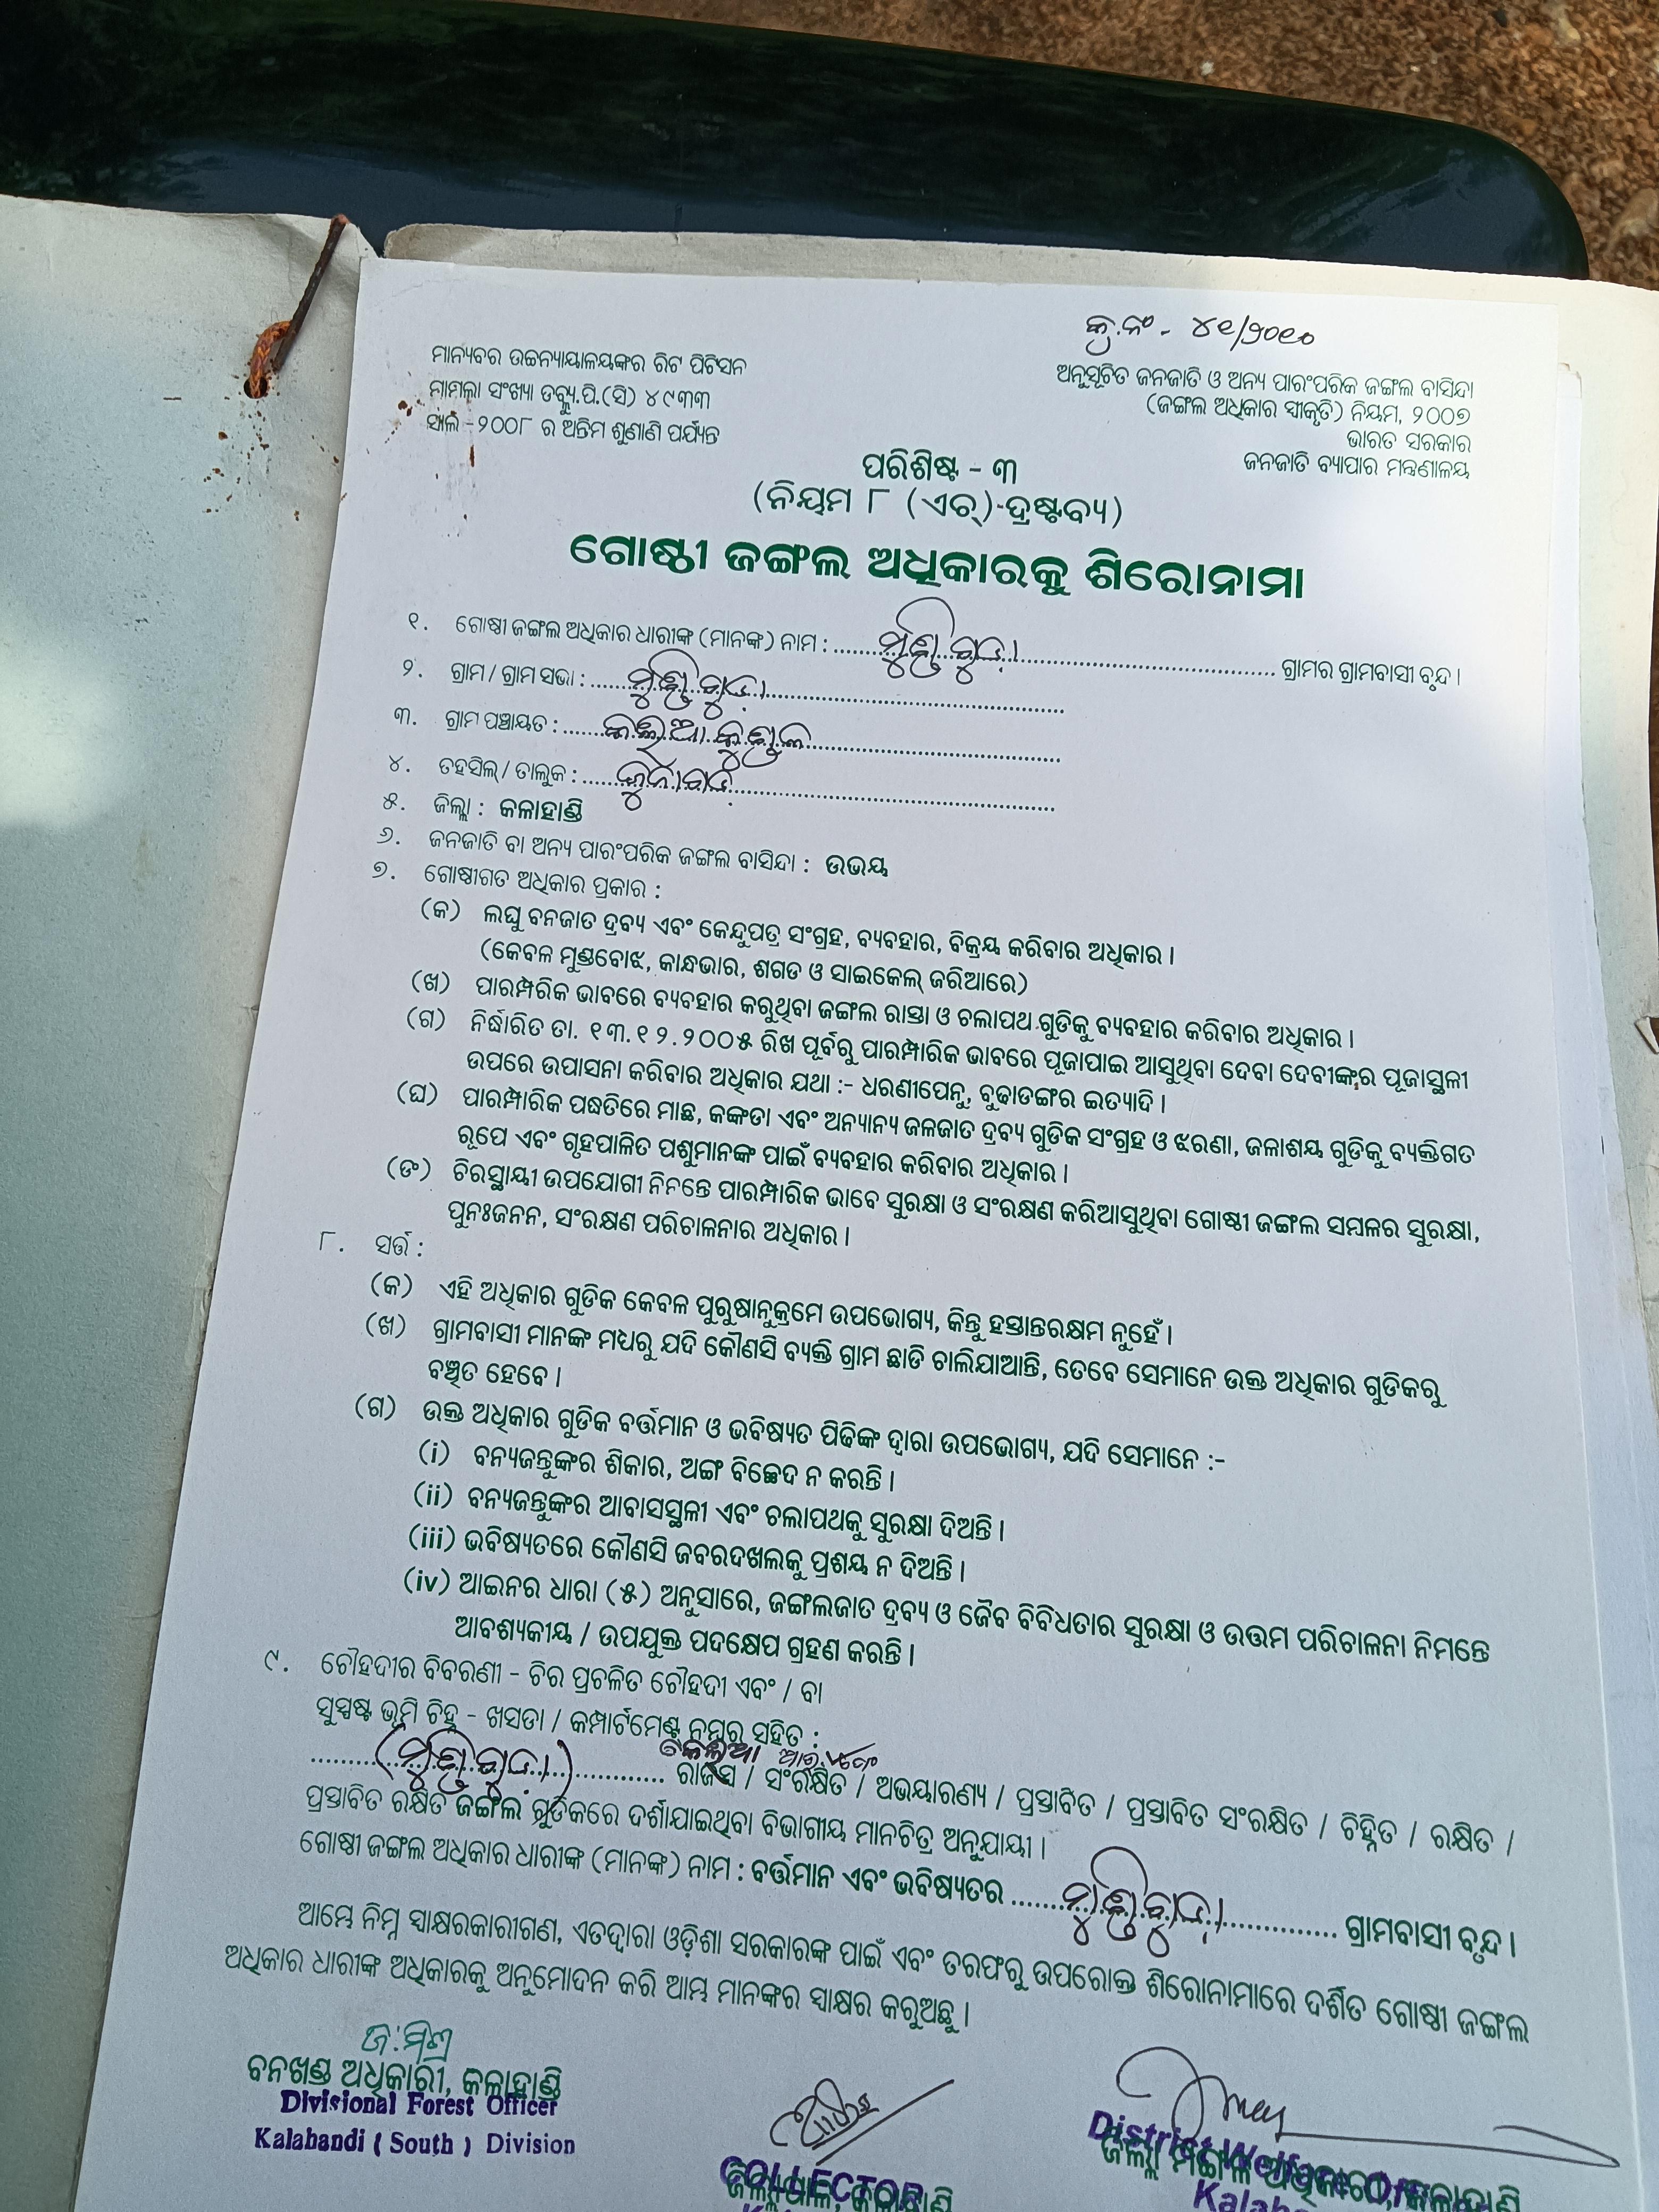 କ୍ର.ନଂ - ୪୧/୨୦୧୦
ମାନ୍ୟବର ଉଚ୍ଚନ୍ୟାୟାଳୟଙ୍କର ରିଟ ପିଟିସନ
ମାମଲା ସଂଖ୍ୟା ଡବ୍ଲ୍ୟୁ.ପି.(ସି) ୪୯୩୩
ସାଲ -୨୦୦୮ ର ଅନ୍ତିମ ଶୁଣାଣି ପର୍ଯ୍ୟନ୍ତ
ଅନୁସୂଚିତ ଜନଜାତି ଓ ଅନ୍ୟ ପାରଂପରିକ ଜଙ୍ଗଲ ବାସିନ୍ଦା
(ଜଙ୍ଗଲ ଅଧିକାର ସ୍ୱୀକୃତି) ନିୟମ, ୨୦୦୭
ଭାରତ ସରକାର
ଜନଜାତି ବ୍ୟାପାର ମନ୍ତ୍ରଣାଳୟ
ପରିଶିଷ୍ଟ - ୩
(ନିୟମ ୮ (ଏଚ୍)-ଦ୍ରଷ୍ଟବ୍ୟ)
ଗୋଷ୍ଠୀ ଜଙ୍ଗଲ ଅଧିକାରକୁ ଶିରୋନାମା
୧. ଗୋଷ୍ଠୀ ଜଙ୍ଗଲ ଅଧିକାର ଧାରୀଙ୍କ (ମାନଙ୍କ) ନାମ : ମୁଣ୍ଡିଗୁଡ଼ା ଗ୍ରାମର ଗ୍ରାମବାସୀ ବୃନ୍ଦ ।
୨. ଗ୍ରାମ / ଗ୍ରାମ ସଭା : ମୁଣ୍ଡିଗୁଡ଼ା
୩. ଗ୍ରାମ ପଞ୍ଚାୟତ :
୪. ତହସିଲ୍ / ତାଲୁକ :
୫. ଜିଲ୍ଲା : କଳାହାଣ୍ଡି
୬. ଜନଜାତି ବା ଅନ୍ୟ ପାରଂପରିକ ଜଙ୍ଗଲ ବାସିନ୍ଦା : ଉଭୟ
୭. ଗୋଷ୍ଠୀଗତ ଅଧିକାର ପ୍ରକାର :
(କ) ଲଘୁ ବନଜାତ ଦ୍ରବ୍ୟ ଏବଂ କେନ୍ଦୁପତ୍ର ସଂଗ୍ରହ, ବ୍ୟବହାର, ବିକ୍ରୟ କରିବାର ଅଧିକାର ।
(କେବଳ ମୁଣ୍ଡବୋଝ, କାନ୍ଧଭାର, ଶଗଡ ଓ ସାଇକେଲ୍ ଜରିଆରେ)
(ଖ) ପାରମ୍ପରିକ ଭାବରେ ବ୍ୟବହାର କରୁଥିବା ଜଙ୍ଗଲ ରାସ୍ତା ଓ ଚଲାପଥ ଗୁଡିକୁ ବ୍ୟବହାର କରିବାର ଅଧିକାର ।
(ଗ) ନିର୍ଦ୍ଧାରିତ ତା. ୧୩.୧୨.୨୦୦୫ ରିଖ ପୂର୍ବରୁ ପାରମ୍ପାରିକ ଭାବରେ ପୂଜାପାଇ ଆସୁଥିବା ଦେବା ଦେବୀଙ୍କର ପୂଜାସ୍ଥଳୀ
ଉପରେ ଉପାସନା କରିବାର ଅଧିକାର ଯଥା :- ଧରଣୀପେନୁ, ବୁଢାଡଙ୍ଗର ଇତ୍ୟାଦି ।
(ଘ) ପାରମ୍ପାରିକ ପଦ୍ଧତିରେ ମାଛ, କଙ୍କଡା ଏବଂ ଅନ୍ୟାନ୍ୟ ଜଳଜାତ ଦ୍ରବ୍ୟ ଗୁଡିକ ସଂଗ୍ରହ ଓ ଝରଣା, ଜଳାଶୟ ଗୁଡିକୁ ବ୍ୟକ୍ତିଗତ
ରୂପେ ଏବଂ ଗୃହପାଳିତ ପଶୁମାନଙ୍କ ପାଇଁ ବ୍ୟବହାର କରିବାର ଅଧିକାର ।
(ଙ) ଚିରସ୍ଥାୟୀ ଉପଯୋଗୀ ନିମନ୍ତେ ପାରମ୍ପାରିକ ଭାବେ ସୁରକ୍ଷା ଓ ସଂରକ୍ଷଣ କରିଆସୁଥିବା ଗୋଷ୍ଠୀ ଜଙ୍ଗଲ ସମ୍ବଳର ସୁରକ୍ଷା,
ପୁନଃଜନନ, ସଂରକ୍ଷଣ ପରିଚାଳନାର ଅଧିକାର ।
୮. ସର୍ତ୍ତ :
(କ) ଏହି ଅଧିକାର ଗୁଡିକ କେବଳ ପୁରୁଷାନୁକ୍ରମେ ଉପଭୋଗ୍ୟ, କିନ୍ତୁ ହସ୍ତାନ୍ତରକ୍ଷମ ନୁହେଁ ।
(ଖ) ଗ୍ରାମବାସୀ ମାନଙ୍କ ମଧ୍ୟରୁ ଯଦି କୌଣସି ବ୍ୟକ୍ତି ଗ୍ରାମ ଛାଡି ଚାଲିଯାଆନ୍ତି, ତେବେ ସେମାନେ ଉକ୍ତ ଅଧିକାର ଗୁଡିକରୁ
ବଞ୍ଚିତ ହେବେ ।
(ଗ) ଉକ୍ତ ଅଧିକାର ଗୁଡିକ ବର୍ତ୍ତମାନ ଓ ଭବିଷ୍ୟତ ପିଢିଙ୍କ ଦ୍ୱାରା ଉପଭୋଗ୍ୟ, ଯଦି ସେମାନେ :-
(i) ବନ୍ୟଜନ୍ତୁଙ୍କର ଶିକାର, ଅଙ୍ଗ ବିଚ୍ଛେଦ ନ କରନ୍ତି ।
(ii) ବନ୍ୟଜନ୍ତୁଙ୍କର ଆବାସସ୍ଥଳୀ ଏବଂ ଚଲାପଥକୁ ସୁରକ୍ଷା ଦିଅନ୍ତି ।
(iii) ଭବିଷ୍ୟତରେ କୌଣସି ଜବରଦଖଲକୁ ପ୍ରଶୟ ନ ଦିଅନ୍ତି ।
(iv) ଆଇନର ଧାରା (୫) ଅନୁସାରେ, ଜଙ୍ଗଲଜାତ ଦ୍ରବ୍ୟ ଓ ଜୈବ ବିବିଧତାର ସୁରକ୍ଷା ଓ ଉତ୍ତମ ପରିଚାଳନା ନିମନ୍ତେ
ଆବଶ୍ୟକୀୟ / ଉପଯୁକ୍ତ ପଦକ୍ଷେପ ଗ୍ରହଣ କରନ୍ତି ।
୯. ଚୌହଦୀର ବିବରଣୀ - ଚିର ପ୍ରଚଳିତ ଚୌହଦୀ ଏବଂ / ବା
ସୁସ୍ପଷ୍ଟ ଭୂମି ଚିହ୍ନ - ଖସଡା / କମ୍ପାର୍ଟମେଣ୍ଟ ନମ୍ବର ସହିତ :
(ମୁଣ୍ଡିଗୁଡ଼ା) ରାଜସ୍ୱ / ସଂରକ୍ଷିତ / ଅଭୟାରଣ୍ୟ / ପ୍ରସ୍ତାବିତ / ପ୍ରସ୍ତାବିତ ସଂରକ୍ଷିତ / ଚିହ୍ନିତ / ରକ୍ଷିତ /
ପ୍ରସ୍ତାବିତ ରକ୍ଷିତ ଜଙ୍ଗଲ ଗୁଡିକରେ ଦର୍ଶାଯାଇଥିବା ବିଭାଗୀୟ ମାନଚିତ୍ର ଅନୁଯାୟୀ ।
ଗୋଷ୍ଠୀ ଜଙ୍ଗଲ ଅଧିକାର ଧାରୀଙ୍କ (ମାନଙ୍କ) ନାମ : ବର୍ତ୍ତମାନ ଏବଂ ଭବିଷ୍ୟତର ମୁଣ୍ଡିଗୁଡ଼ା ଗ୍ରାମବାସୀ ବୃନ୍ଦ ।
ଆମ୍ଭେ ନିମ୍ନ ସ୍ୱାକ୍ଷରକାରୀଗଣ, ଏତଦ୍ୱାରା ଓଡ଼ିଶା ସରକାରଙ୍କ ପାଇଁ ଏବଂ ତରଫରୁ ଉପରୋକ୍ତ ଶିରୋନାମାରେ ଦର୍ଶିତ ଗୋଷ୍ଠୀ ଜଙ୍ଗଲ
ଅଧିକାର ଧାରୀଙ୍କ ଅଧିକାରକୁ ଅନୁମୋଦନ କରି ଆମ୍ଭ ମାନଙ୍କର ସ୍ୱାକ୍ଷର କରୁଅଛୁ ।
ବନଖଣ୍ଡ ଅଧିକାରୀ, କଳାହାଣ୍ଡି
Divisional Forest Officer
Kalahandi (South) Division
COLLECTOR
ଜିଲ୍ଲାପାଳ, କଳାହାଣ୍ଡି
District Welfare
ଜିଲ୍ଲା ମଙ୍ଗଳ ଅଧିକାରୀ, କଳାହାଣ୍ଡି